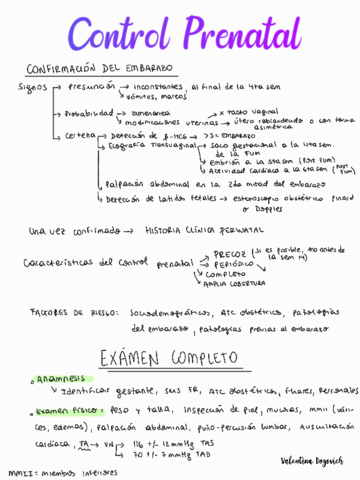 Control Prenatal
CONFIRMACIÓN DEL EMBARAZO
Signos → Presunción → inconstantes, al final de la 4ta sem
→ vómitos, mareos
→ Probabilidad → amenorrea
→ modificaciones uterinas → x tacto vaginal
útero reblandecido o con forma asimétrica
→ Certeza → Detección de β-HCG → >5 = EMBARAZO
→ Ecografía Transvaginal → Saco gestacional a la 4ta sem
de la FUM
→ Embrión a la 5ta sem (post FUM)
→ Actividad cardíaca a la 6ta sem (post FUM)
→ Palpación abdominal en la 2da mitad del embarazo
→ Detección de latidos fetales → estetoscopio obstétrico Pinard
o Doppler
Una vez confirmado → HISTORIA CLÍNICA PERINATAL
Características del control prenatal → PRECOZ (si es posible, antes de
la sem 14)
→ PERIÓDICO
→ COMPLETO
→ AMPLIA COBERTURA
FACTORES DE RIESGO: Sociodemográficos, ATC obstétrico, patologías
del embarazo, patologías previas al embarazo
EXÁMEN COMPLETO
• Anamnesis
↳ Identificar gestante, sus FR, ATC obstétricos, fliares, personales
• Examen físico: Peso y talla, inspección de piel, mucosas, mmii (várices,
edemas), Palpación abdominal, puño-percusión lumbar, Auscultación
cardíaca, TA → VN → 116 +/- 12 mmHg TAS
→ 70 +/- 7 mmHg TAD
MMII: miembros inferiores